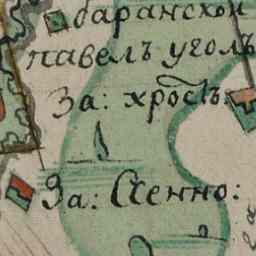 баранской
павелъ уголъ
За: хрость
За: Сѣнно: